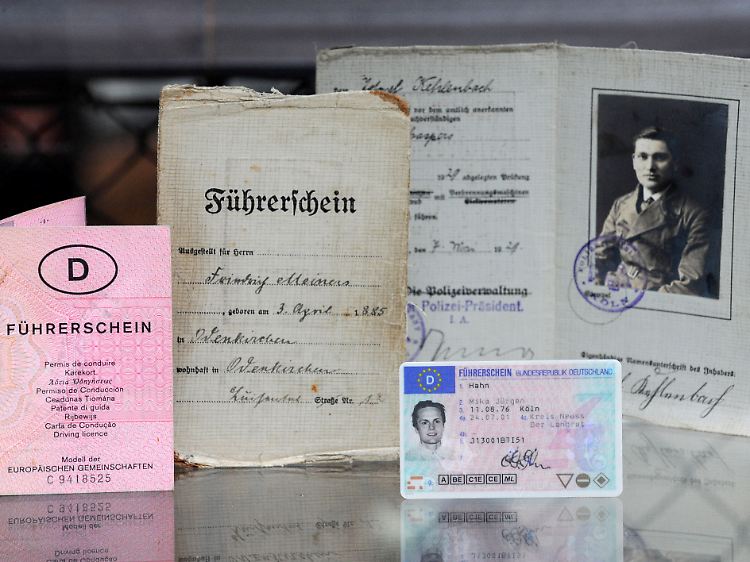 D
FÜHRERSCHEIN
Permis de conduire
Kørekort
Άδεια Οδηγήσεως
Permiso de Conducción
Ceadúnas Tiomána
Patente di guida
Rijbewijs
Carta de Condução
Driving licence
Modell der
EUROPÄISCHEN GEMEINSCHAFTEN
C 9418525
Führerschein
Ausgestellt für Herrn
Friedrich Meiners
geboren am 3. April 1885
in Odenkirchen
wohnhaft in Odenkirchen
Straße Nr.
Josef Kehlenbach
vor dem amtlich anerkannten
1929 abgelegten Prüfung
mit Verbrennungsmaschinen
führen.
7. Mai 1929.
Die Polizeiverwaltung
Polizei-Präsident.
I. A.
Eigenhändige Namensunterschrift des Inhabers.
Kehlenbach
D
FÜHRERSCHEIN BUNDESREPUBLIK DEUTSCHLAND
1 Hahn
2 Mika Jürgen
3 11.08.76 Köln
Kreis Neuss
Der Landrat
J13001BTI51
A BE C1E CE ML